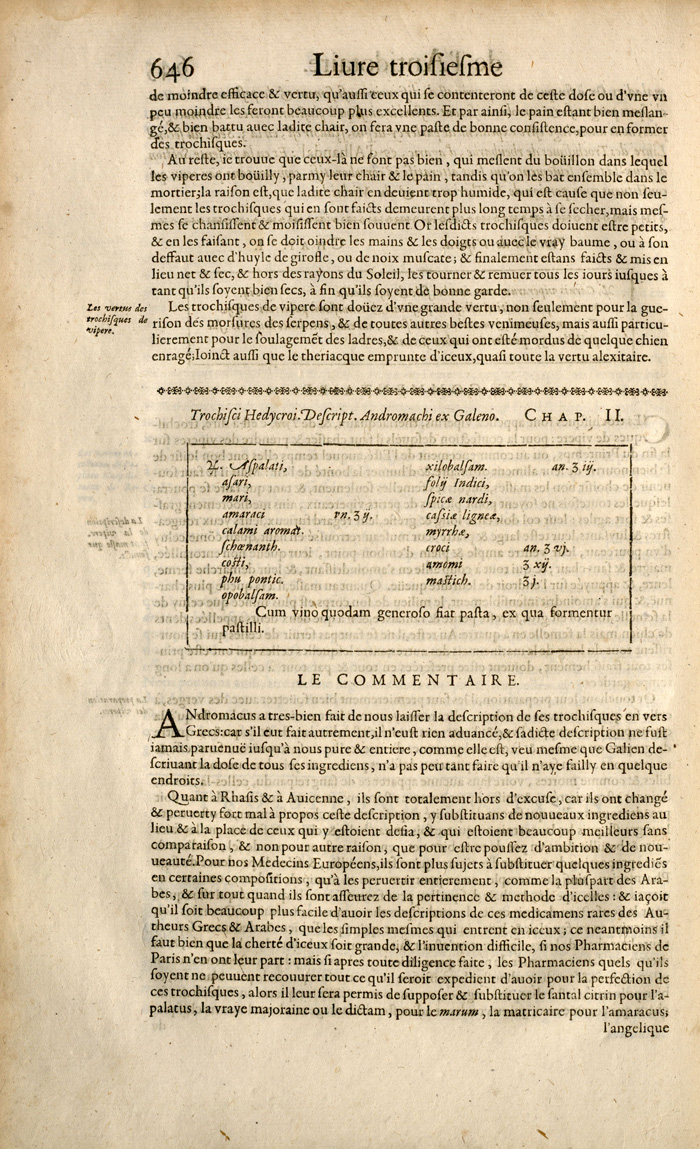 646 Liure troisiesme
de moindre efficace & vertu, qu'aussi ceux qui se contenteront de ceste dose ou d'vne vn
peu moindre les feront beaucoup plus excellents. Et par ainsi, le pain estant bien meslan-
gé,& bien battu auec ladite chair, on fera vne paste de bonne consistence,pour en former
des trochisques.
Au reste, ie trouue que ceux-là ne font pas bien, qui meslent du boüillon dans lequel
les viperes ont boüilly, parmy leur chair & le pain, tandis qu'on les bat ensemble dans le
mortier;la raison est,que ladite chair en deuient trop humide, qui est cause que non seu-
lement les trochisques qui en sont faicts demeurent plus long temps à se secher,mais mes-
mes se chansissent & moisissent bien souuent. Or lesdicts trochisques doiuent estre petits,
& en les faisant, on se doit oindre les mains & les doigts ou auec le vray baume, ou à son
deffaut auec d'huyle de girofle, ou de noix muscate; & finalement estans faicts & mis en
lieu net & sec, & hors des rayons du Soleil, les tourner & remuer tous les iours iusques à
tant qu'ils soyent bien secs, à fin qu'ils soyent de bonne garde.
Les vertus des
trochisques de
vipere.
Les trochisques de vipere sont doüez d'vne grande vertu, non seulement pour la gue-
rison des morsures des serpens, & de toutes autres bestes venimeuses, mais aussi particu-
lierement pour le soulagemẽt des ladres,& de ceux qui ont esté mordus de quelque chien
enragé;loinct aussi que le theriacque emprunte d'iceux,quasi toute la vertu alexitaire.
Trochisci Hedycroi. Descript. Andromachi ex Galeno. CHAP. II.
♃. Aspalati,
asari,
mari,
amaraci vn. ʒ ij.
calami aromat.
schœnanth.
costi,
phu pontic.
opobalsam.
xilobalsam. an. ʒ iij.
folij Indici,
spicæ nardi,
cassiæ ligneæ,
myrrhæ,
croci an. ʒ vj.
amomi ʒ xij.
mastich. ʒ j.
Cum vino quodam generoso fiat pasta, ex qua formentur
pastilli.
LE COMMENTAIRE.
ANdromacus a tres-bien fait de nous laisser la description de ses trochisques en vers
Grecs:car s'il eut fait autrement,il n'eust rien aduancé,& sadicte description ne fust
iamais paruenuë iusqu'à nous pure & entiere, comme elle est, veu mesme que Galien de-
scriuant la dose de tous ses ingrediens, n'a pas peu tant faire qu'il n'aye failly en quelque
endroits.
Quant à Rhasis & à Auicenne, ils sont totalement hors d'excuse, car ils ont changé
& peruerty fort mal à propos ceste description, y substituans de nouueaux ingrediens au
lieu & à la place de ceux qui y estoient desia, & qui estoient beaucoup meilleurs sans
comparaison, & non pour autre raison, que pour estre poussez d'ambition & de nou-
ueauté.Pour nos Medecins Européens,ils sont plus sujets à substituer quelques ingrediẽs
en certaines compositions, qu'à les peruertir entierement, comme la pluspart des Ara-
bes, & sur tout quand ils sont asseurez de la pertinence & methode d'icelles : & iaçoit
qu'il soit beaucoup plus facile d'auoir les descriptions de ces medicamens rares des Au-
theurs Grecs & Arabes, que les simples mesmes qui entrent en iceux ; ce neantmoins il
faut bien que la cherté d'iceux soit grande, & l'inuention difficile, si nos Pharmaciens de
Paris n'en ont leur part : mais si apres toute diligence faite, les Pharmaciens quels qu'ils
soyent ne peuuent recouurer tout ce qu'il seroit expedient d'auoir pour la perfection de
ces trochisques, alors il leur sera permis de supposer & substituer le santal citrin pour l'a-
palatus, la vraye majoraine ou le dictam, pour le marum, la matricaire pour l'amaracus;
l'angelique